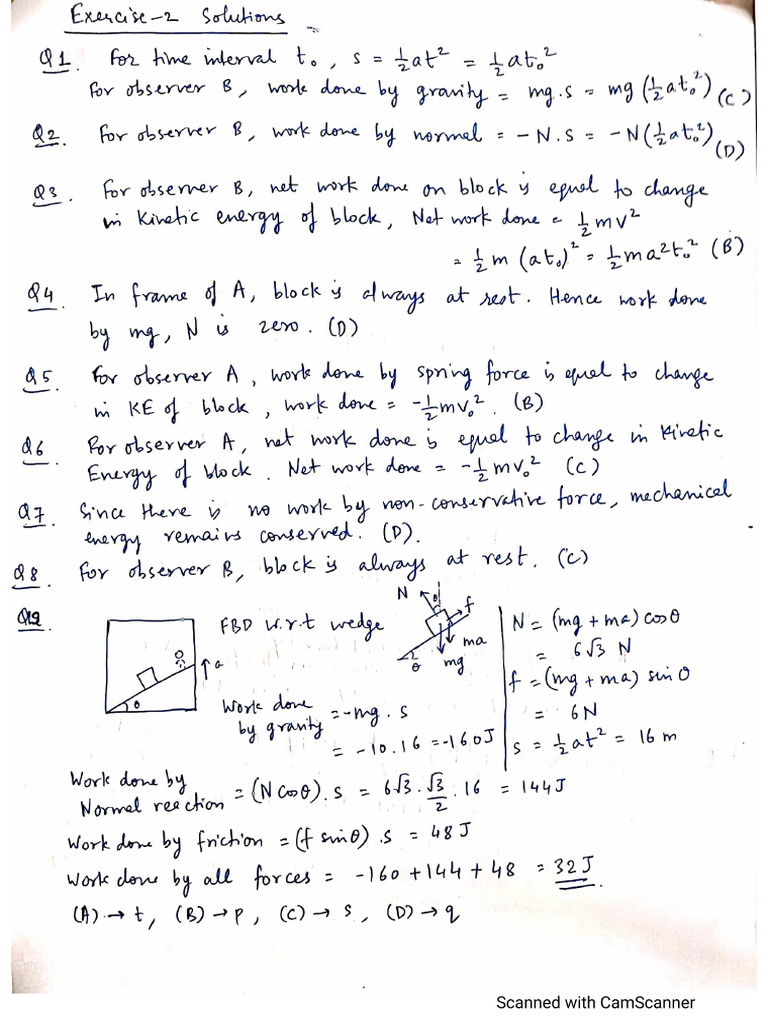 Exercise-2 Solutions
Q1. For time interval t₀, s = ½at² = ½at₀²
For observer B, work done by gravity = mg.s = mg(½at₀²) (C)
Q2. For observer B, work done by normal = -N.S = -N(½at₀²) (D)
Q3. For observer B, net work done on block is equal to change
in Kinetic energy of block, Net work done = ½mv²
= ½m(at₀)² = ½ma²t₀² (B)
Q4 In frame of A, block is always at rest. Hence work done
by mg, N is zero. (D)
Q5. For observer A, work done by spring force is equal to change
in KE of block, work done = -½mv₀². (B)
Q6. For observer A, net work done is equal to change in Kinetic
Energy of block. Net work done = -½mv₀² (C)
Q7. Since there is no work by non-conservative force, mechanical
energy remains conserved. (D).
Q8. For observer B, block is always at rest. (C)
Q19
a
θ
FBD w.r.t wedge
N
θ
f
ma
mg
θ
N = (mg + ma) cosθ
= 6√3 N
f = (mg + ma) sinθ
= 6N
s = ½at² = 16 m
Work done by gravity = -mg.s
= -10.16 = -160J
Work done by
Normal reaction = (N cosθ).s = 6√3.√3/2.16 = 144J
Work done by friction = (f sinθ).s = 48J
Work done by all forces = -160 + 144 + 48 = 32J.
(A) → t, (B) → p, (C) → s, (D) → q
Scanned with CamScanner